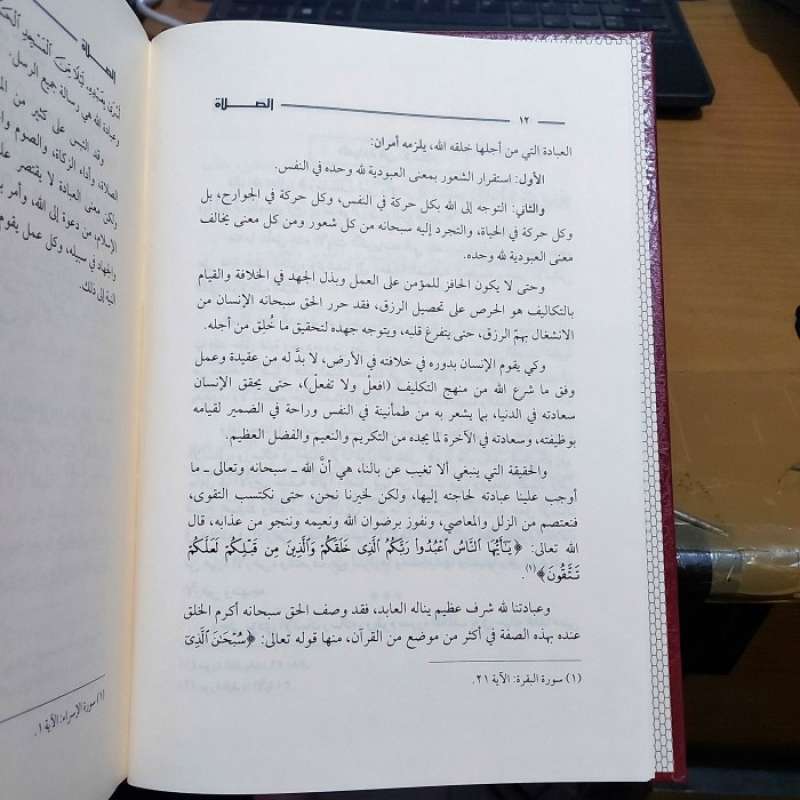 ١٢ الصـــلاة
العبادة التي من أجلها خلقه الله، يلزمه أمران:
الأول: استقرار الشعور بمعنى العبودية لله وحده في النفس.
والثاني: التوجه إلى الله بكل حركة في النفس، وكل حركة في الجوارح، بل
وكل حركة في الحياة، والتجرد إليه سبحانه من كل شعور ومن كل معنى يخالف
معنى العبودية لله وحده.
وحتى لا يكون الحافز للمؤمن على العمل وبذل الجهد في الخلافة والقيام
بالتكاليف هو الحرص على تحصيل الرزق، فقد حرر الحق سبحانه الإنسان من
الانشغال بهمّ الرزق، حتى يتفرغ قلبه، ويتوجه جهده لتحقيق ما خُلق من أجله.
وكي يقوم الإنسان بدوره في خلافته في الأرض، لا بدَّ له من عقيدة وعمل
وفق ما شرع الله من منهج التكليف (افعلْ ولا تفعلْ)، حتى يحقق الإنسان
سعادته في الدنيا، بما يشعر به من طمأنينة في النفس وراحة في الضمير لقيامه
بوظيفته، وسعادته في الآخرة لما يجده من التكريم والنعيم والفضل العظيم.
والحقيقة التي ينبغي ألا تغيب عن بالنا، هي أنَّ الله ـ سبحانه وتعالى ـ ما
أوجب علينا عبادته لحاجته إليها، ولكن لخيرنا نحن، حتى نكتسب التقوى،
فنعتصم من الزلل والمعاصي، ونفوز برضوان الله ونعيمه وننجو من عذابه، قال
الله تعالى: ﴿يَـٰٓأَيُّهَا ٱلنَّاسُ ٱعْبُدُوا۟ رَبَّكُمُ ٱلَّذِى خَلَقَكُمْ وَٱلَّذِينَ مِن قَبْلِكُمْ لَعَلَّكُمْ
تَتَّقُونَ﴾(١).
وعبادتنا لله شرف عظيم يناله العابد، فقد وصف الحق سبحانه أكرم الخلق
عنده بهذه الصفة في أكثر من موضع من القرآن، منها قوله تعالى: ﴿سُبْحَـٰنَ ٱلَّذِىٓ
(١) سورة البقرة: الآية ٢١.
الصـلاة
وعبادة الله هي رسالة جميع الرسل.
وقد التبس على كثير من
الصلاة، وأداء الزكاة، والصوم
ولكن معنى العبادة لا يقتصر
الإسلام، من دعوة إلى الله، وأمر
والجهاد في سبيله، وكل عمل يقوم
النية إلى ذلك.
(١) سورة الإسراء: الآية ١.